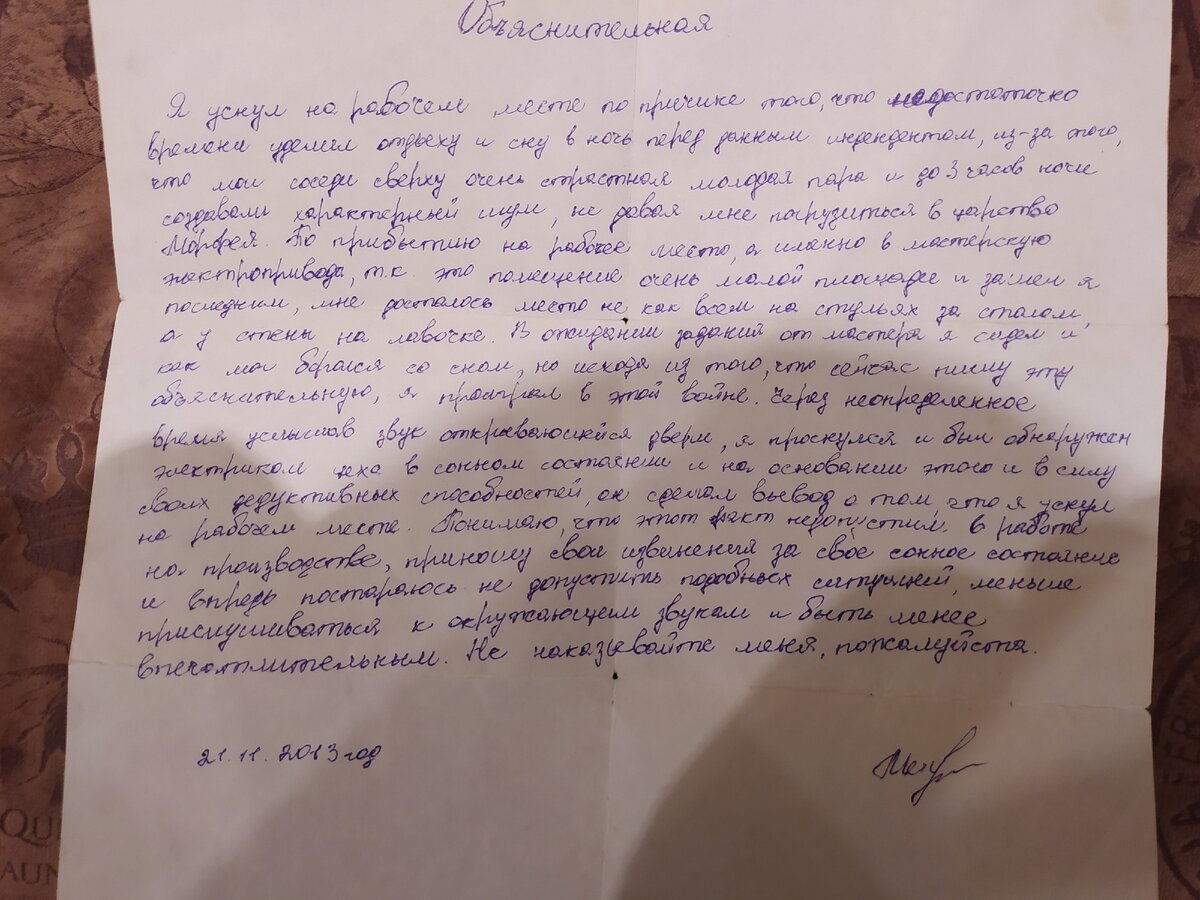 Объяснительная
Я уснул на рабочем месте по причине того, что недостаточно
времени уделил отдыху и сну в ночь перед данным индендентом, из-за того,
что мои соседи сверху очень страстная молодая пара и до 3 часов ночи
создавали характерный шум, не давая мне погрузиться в царство
Морфея. По прибытию на рабочее место, а именно в мастерскую
электропривода, т.к. это помещение очень малой площади и зашел я
последним, мне досталось место не как всем на стульях за столом,
а у стены на лавочке. В ожидании задания от мастера я сидел и
как мог боролся со сном, но исходя из того, что сейчас пишу эту
объяснительную, я проиграл в этой войне. Через неопределенное
время услышав звук открывающейся двери, я проснулся и был обнаружен
электриком цеха в сонном состоянии и на основании этого и в силу
своих дедуктивных способностей, он сделал вывод о том, что я уснул
на рабочем месте. Понимаю, что этот факт недопустим в работе
на производстве, приношу свои извинения за свое сонное состояние
и впредь постараюсь не допустить подобных ситуаций, меньше
прислушиваться к окружающем звукам и быть менее
впечатлительным. Не наказывайте меня, пожалуйста.
21.11.2013 год
QU
AUN